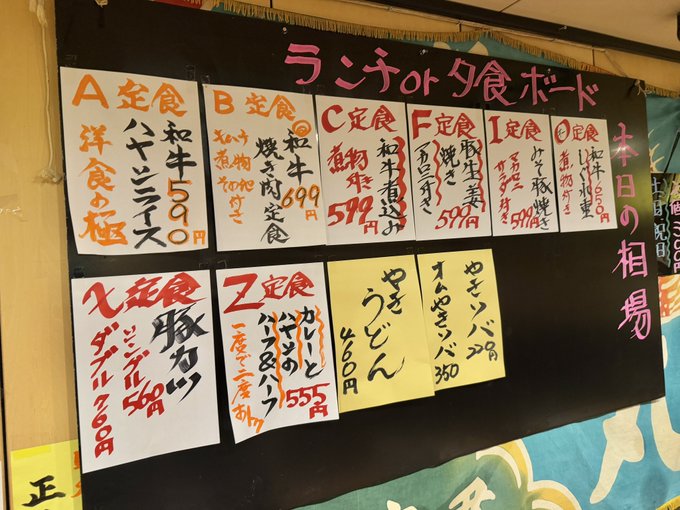 ランチor夕食ボード
本日の相場
A定食
和牛590円
ハヤシライス
洋食の極
B定食
和牛
699円
焼き肉定食
煮物
その他付き
C定食
和牛煮込み
煮物付き
599円
F定食
豚生姜
焼き
マカロニ付き
599円
I定食
みそ豚焼き
マカロニ
サラダ付き
599円
定食
和牛
しぐれ重
650円
煮物付き
X定食
豚カツ
シングル560円
ダブル760円
Z定食
カレーと
ハヤシの
ハーフ&ハーフ
一度で二度
555円
やき
うどん
460円
やきソバ
220円
オムやきソバ
350
土日祝日
正